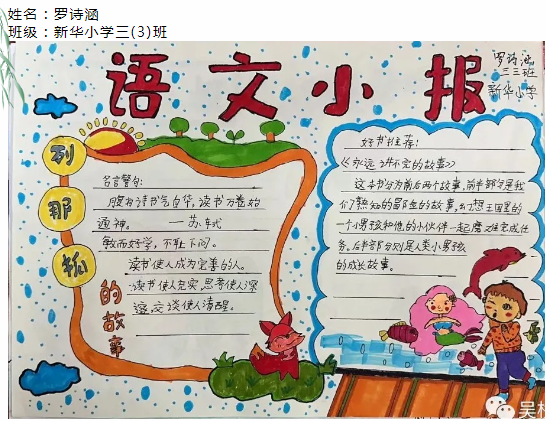 姓名：罗诗涵
班级：新华小学三(3)班
语文小报
罗诗涵
三三班
新华小学
列那狐的故事
名言警句：
腹有诗书气自华，读书万卷始
通神。——苏轼
敏而好学，不耻下问。
读书使人成为完善的人。
读书使人充实，思考使人深
邃，交谈使人清醒。
好书推荐：
《永远讲不完的故事》
这本书分为前后两个故事，前半部分是我
们了熟知的
的故事，幻想王国里的
一个小男孩和他的小伙伴一起魔
完成任
务。后半部分则是人类小男孩
的成长故事。
吴